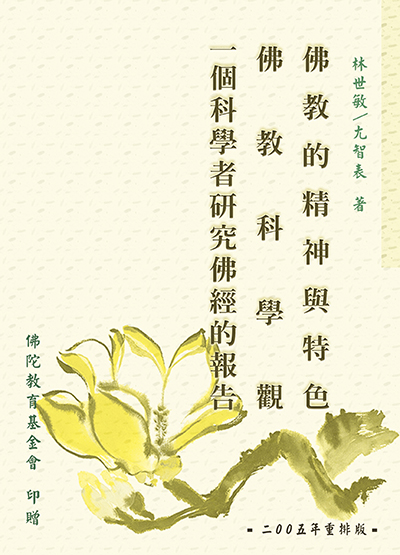 林世敏/尢智表 著
佛教的精神與特色
佛教科學觀
一個科學者研究佛經的報告
佛陀教育基金會 印贈
-二00五年重排版-